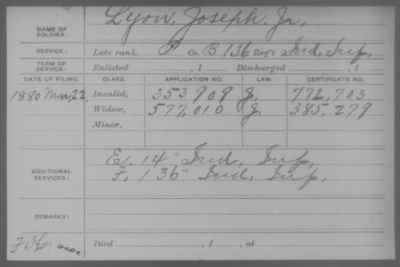 NAME OF SOLDIER: Lyon, Joseph, Jr.
SERVICE: Late rank, P Co. B, 136 Reg't Ind. Inf.
TERM OF SERVICE: Enlisted , 1 Discharged , 1
DATE OF FILING. CLASS. APPLICATION NO. LAW. CERTIFICATE NO.
1880 Mar, 22 Invalid, 353909 J. 772,703
Widow, 577,010 J. 385,279
Minor,
ADDITIONAL SERVICES: E, 14" Ind. Inf.
F, 136" Ind. Inf.
REMARKS:
Died , 1 , at